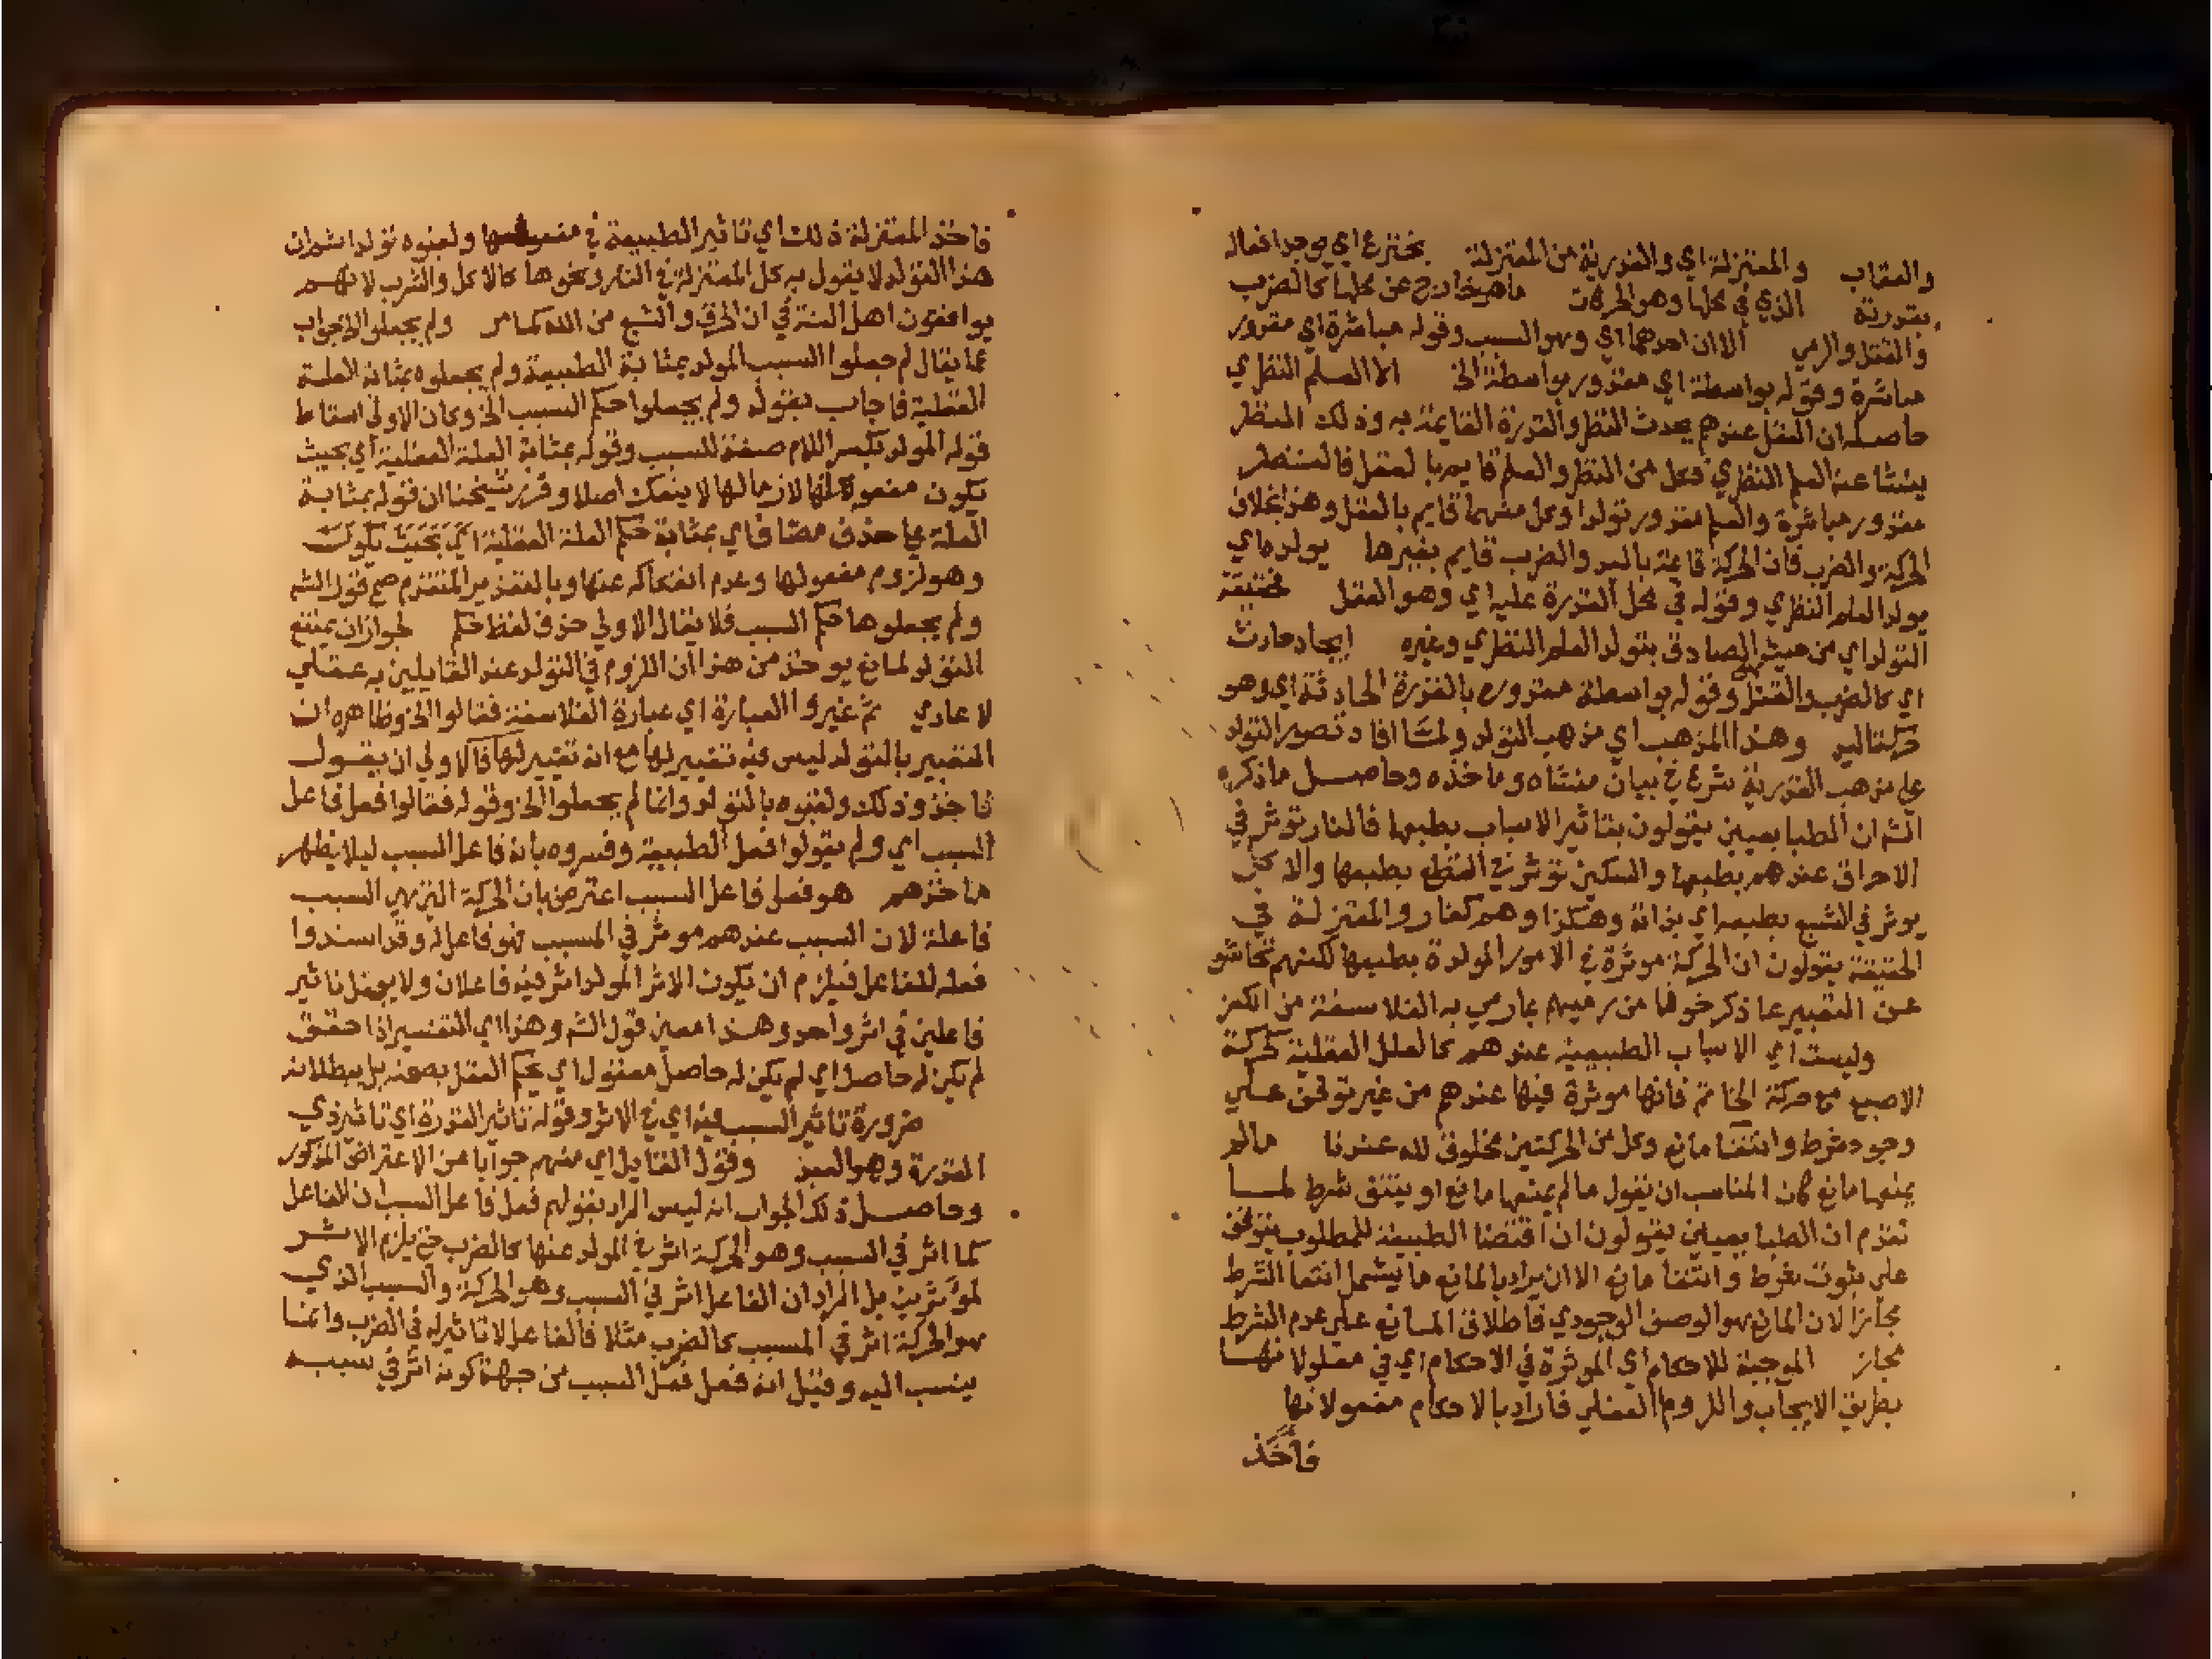 والعقاب والمعتزلة اي والقدرية من المعتزلة يخترع اي يوجد افعاله
بقدرية الذي في محلها وهو الحركات ما هو خارج عن محلها كالضرب
والقتل والرمي الا ان احدهما اي وهو السبب وقوله مباشرة اي مقدور
مباشرة وقوله بواسطة اي مقدور بواسطة الخ الا العلم النظري
حاصله ان العقل عندهم يحدث النظر والقدرة القايمة به وذلك النظر
ينشا عنه العلم النظري فكل من النظر والعلم قايم بالعقل فالنظر
مقدور مباشرة والعلم مقدور تولدا وكل منهما قايم بالعقل وهذا بخلاف
الحركة والضرب فان الحركة قايمة باليد والضرب قايم بغيرها يولد ماي
يولد العلم النظري وقوله في محل القدرة عليه اي وهو العقل حقيقة
التولد اي من حيث الصادق بتولد العلم النظري وغيره ايجاد حادث
اي كالضرب والقتل وقوله بواسطة مقدوره بالقدرة الحادثة اي وهو
حركة اليد وهذا المذهب اي مذهب التولد ولما افاد تصوير التولد
علي مذهب القدرية شرع في بيان منشاه وماخذه وحاصل ما ذكره
الشم ان الطبايعيين يقولون بتاثير الاسباب بطبعها فالنار توثر في
الاحراق عندهم بطبعها والسكين توثر في القطع بطبعها والاكل
يوثر في الشبع بطبعه اي بذاته وهكذا وهم كفار والمعتزلة في
الحقيقة يقولون ان الحركة موثرة في الامور المولدة بطبعها لكنهم تحاشو
عن التعبير بما ذكر خوفا من رميهم بما رمي به الفلاسفة من الكفر
وليست اي الاسباب الطبيعية عندهم كالعلل العقلية كحركة
الاصبع مع حركة الخاتم فانها موثرة فيها عندهم من غير توقف علي
وجود شرط وانتفا مانع وكل من الحركتين مخلوق لله عندنا مالم
يمنعها مانع كان المناسب ان يقول مالم يمنعها مانع او ينتف شرط لما
تقدم ان الطبايعيين يقولون ان اقتضا الطبيعة للمطلوب يتوقف
علي ثبوت شرط وانتفا مانع الا ان يراد بالمانع ما يشمل انتفا الشرط
مجازا لان المانع هو الوصف الوجودي فاطلاق المانع علي عدم الشرط
مجاز الموجبة للاحكام اي الموثرة في الاحكام اي في معلولاتها
بطريق الايجاب واللزوم العقلي فاراد بالاحكام مفعولاتها
فاخذ
فاخذ المعتزلة ذلك اي تاثير الطبيعة في مفعولها ولقبوه تولدا ثم ان
هذا التولد لا يقول به كل المعتزلة في النار ونحوها كالاكل والشرب لانهم
يوافقون اهل السنة في ان الحرق والشبع من الله كما مر ولم يجعلوا الخ جواب
عما يقال لم جعلوا السبب المولد بمثابة الطبيعة ولم يجعلوه بمثابة العلة
العقلية فاجاب بقوله ولم يجعلوا حكم السبب الخ وكان الاولي اسقاط
قوله المولد بكسر اللام صفة للسبب وقوله بمثابة العلة العقلية اي بحيث
يكون مفعولها لازما لها لا ينفك اصلا وقرر شيخنا ان قوله بمثابة
العلة علي حذف مضاف اي بمثابة حكم العلة العقلية اي بحيث يكون
وهو لزوم مفعولها وعدم انفكاكه عنها وبالتقدير المتقدم صح قول الشم
ولم يجعلوها حكم السبب فلا يقال الاولي حذف لفظ حكم لجواز ان يمتنع
التولد لمانع يوخذ من هذا ان اللزوم في التولد عند القايلين به عقلي
لا عادي ثم غيروا العبارة اي عبارة الفلاسفة فقالوا الخ وظاهره ان
التعبير بالتولد ليس فيه تغيير لها مع انه تغيير لها فالاولي ان يقول
فاخذو ذلك ولقبوه بالتولد وانما لم يجعلوا الخ وقوله فقالوا فعل فاعل
السبب اي ولم يقولوا فعل الطبيعة وفسروه بانه فاعل السبب ليلا يظهر
ماخذهم هو فعل فاعل السبب اعترض بان الحركة التي هي السبب
فاعلة لان السبب عندهم موثر في المسبب فهو فاعل له وقد اسندوا
فعله للفاعل فيلزم ان يكون الاثر المولد اثر فيه فاعلان ولا يعقل تاثير
فاعلين في اثر واحد وهذا معني قول الشم وهذا اي التفسير اذا حقق
لم يكن له حاصل اي لم يكن له حاصل معقول اي يحكم العقل بصحته بل ببطلانه
ضرورة تاثير السبب فيه اي في الاثر وقوله تاثير القدرة اي تاثير ذي
القدرة وهو العبد وقول القايل اي منهم جوابا عن الاعتراض المذكور
وحاصل ذلك الجواب انه ليس المراد بقولهم فعل فاعل السبب ان الفاعل
كما اثر في السبب وهو الحركة اثر في المولد عنها كالضرب حتي يلزم الاثر
لموثرين بل المراد ان الفاعل اثر في السبب وهو الحركة والسبب الذي
هو الحركة اثر في المسبب كالضرب مثلا فالفاعل لا تاثير له في الضرب وانما
ينسب اليه وقيل انه فعل فعل السبب من جهة كونه اثر في سببه